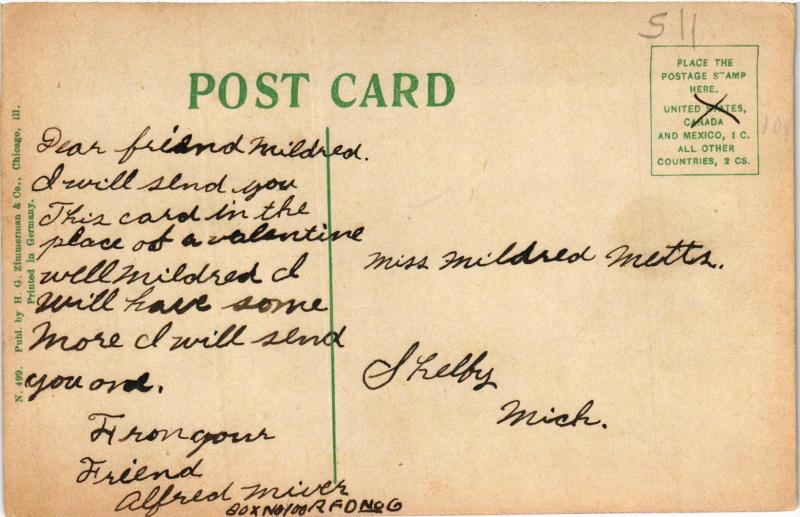 S11
POST CARD
PLACE THE
POSTAGE STAMP
HERE.
UNITED STATES,
CANADA
AND MEXICO, 1 C.
ALL OTHER
COUNTRIES, 2 CS.
N. 499. Publ. by H. G. Zimmerman & Co., Chicago, Ill.
Printed in Germany.
Dear friend Mildred.
I will send you
This card in the
place of a valentine
well Mildred I
Will have some
More I will send
you one.
From your
Friend
Alfred Miver
BOX No 100 R F D No 6
Miss Mildred Metts.
Shelby
Mich.